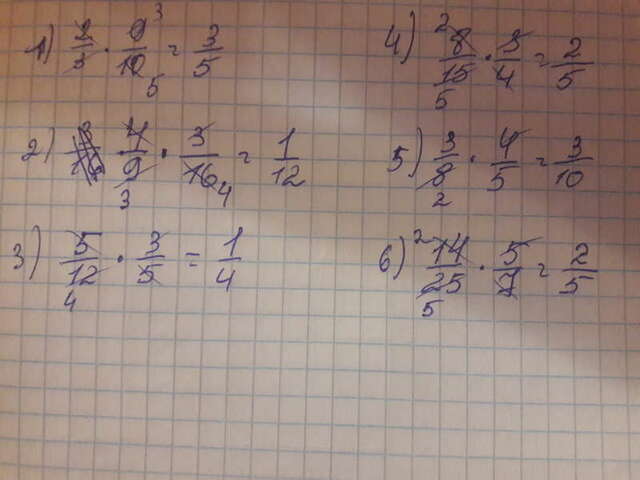 1) 2/3 · 9/10 = 3/5
2) 4/9 · 3/16 = 1/12
3) 5/12 · 3/5 = 1/4
4) 8/15 · 3/4 = 2/5
5) 3/8 · 4/5 = 3/10
6) 14/25 · 5/7 = 2/5